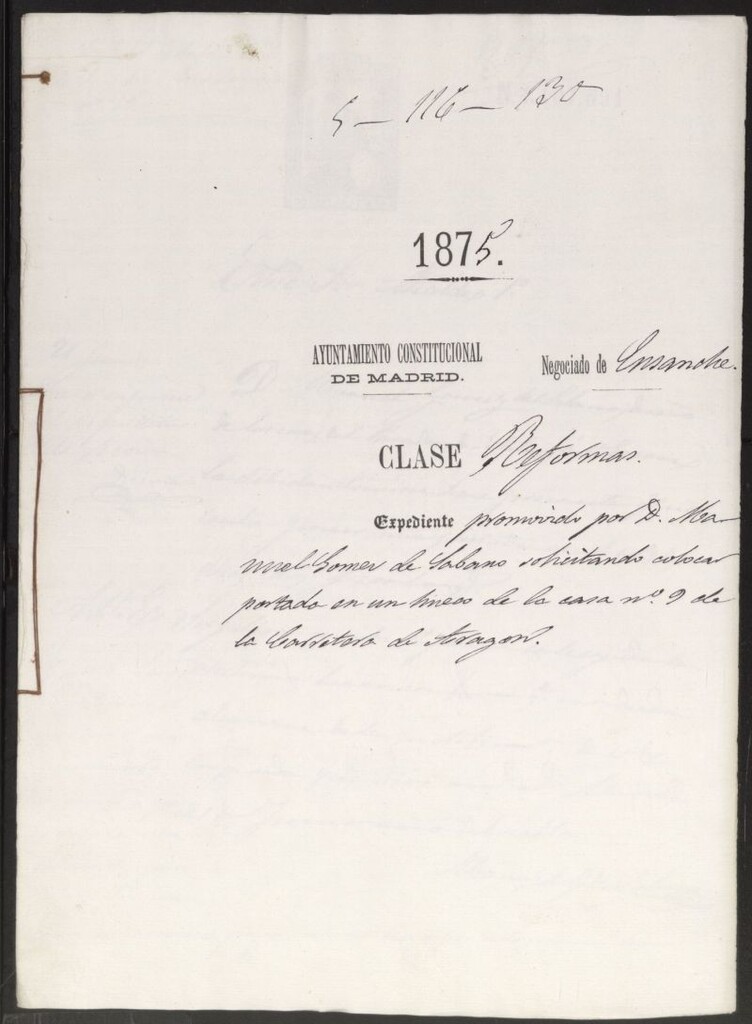 5 - 116 - 130
1875.
AYUNTAMIENTO CONSTITUCIONAL
DE MADRID.
Negociado de Ensanche.
CLASE Reformas.
Expediente promovido por D. Ma-
nuel Gomez de solicitando colocar
portada en un hueco de la casa nº. 9 de
la Carretera de Aragon.